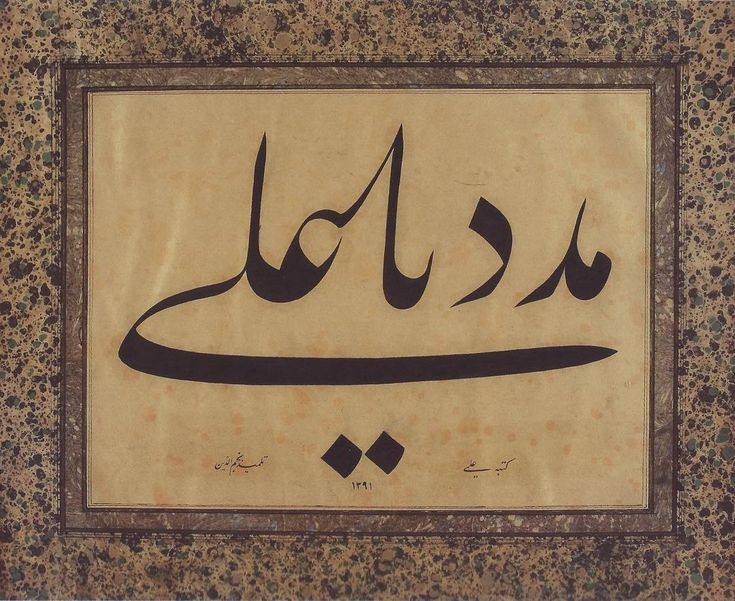 مدد یا علی
کتبه علی
تلمیذ نجم الدین
١٣٩١